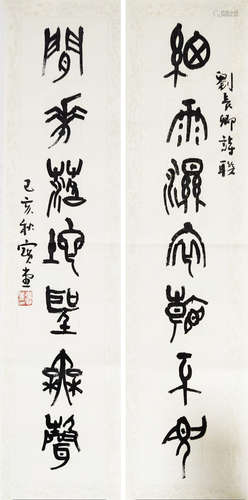 細雨濕衣看不見
劉長卿詩聯
閒花落地聽無聲
己亥秋寶畫